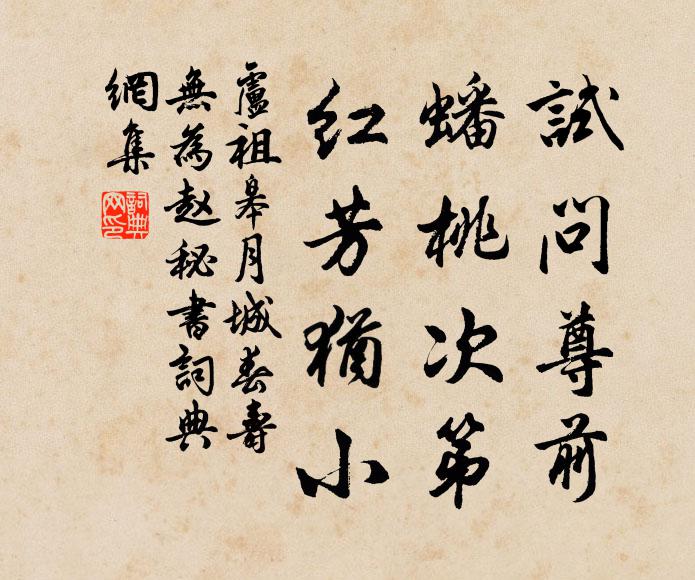 試問尊前
蟠桃次第
红芳猶小
盧祖皋月城春壽
無為赵秘書詞典
網集
詞典
网印